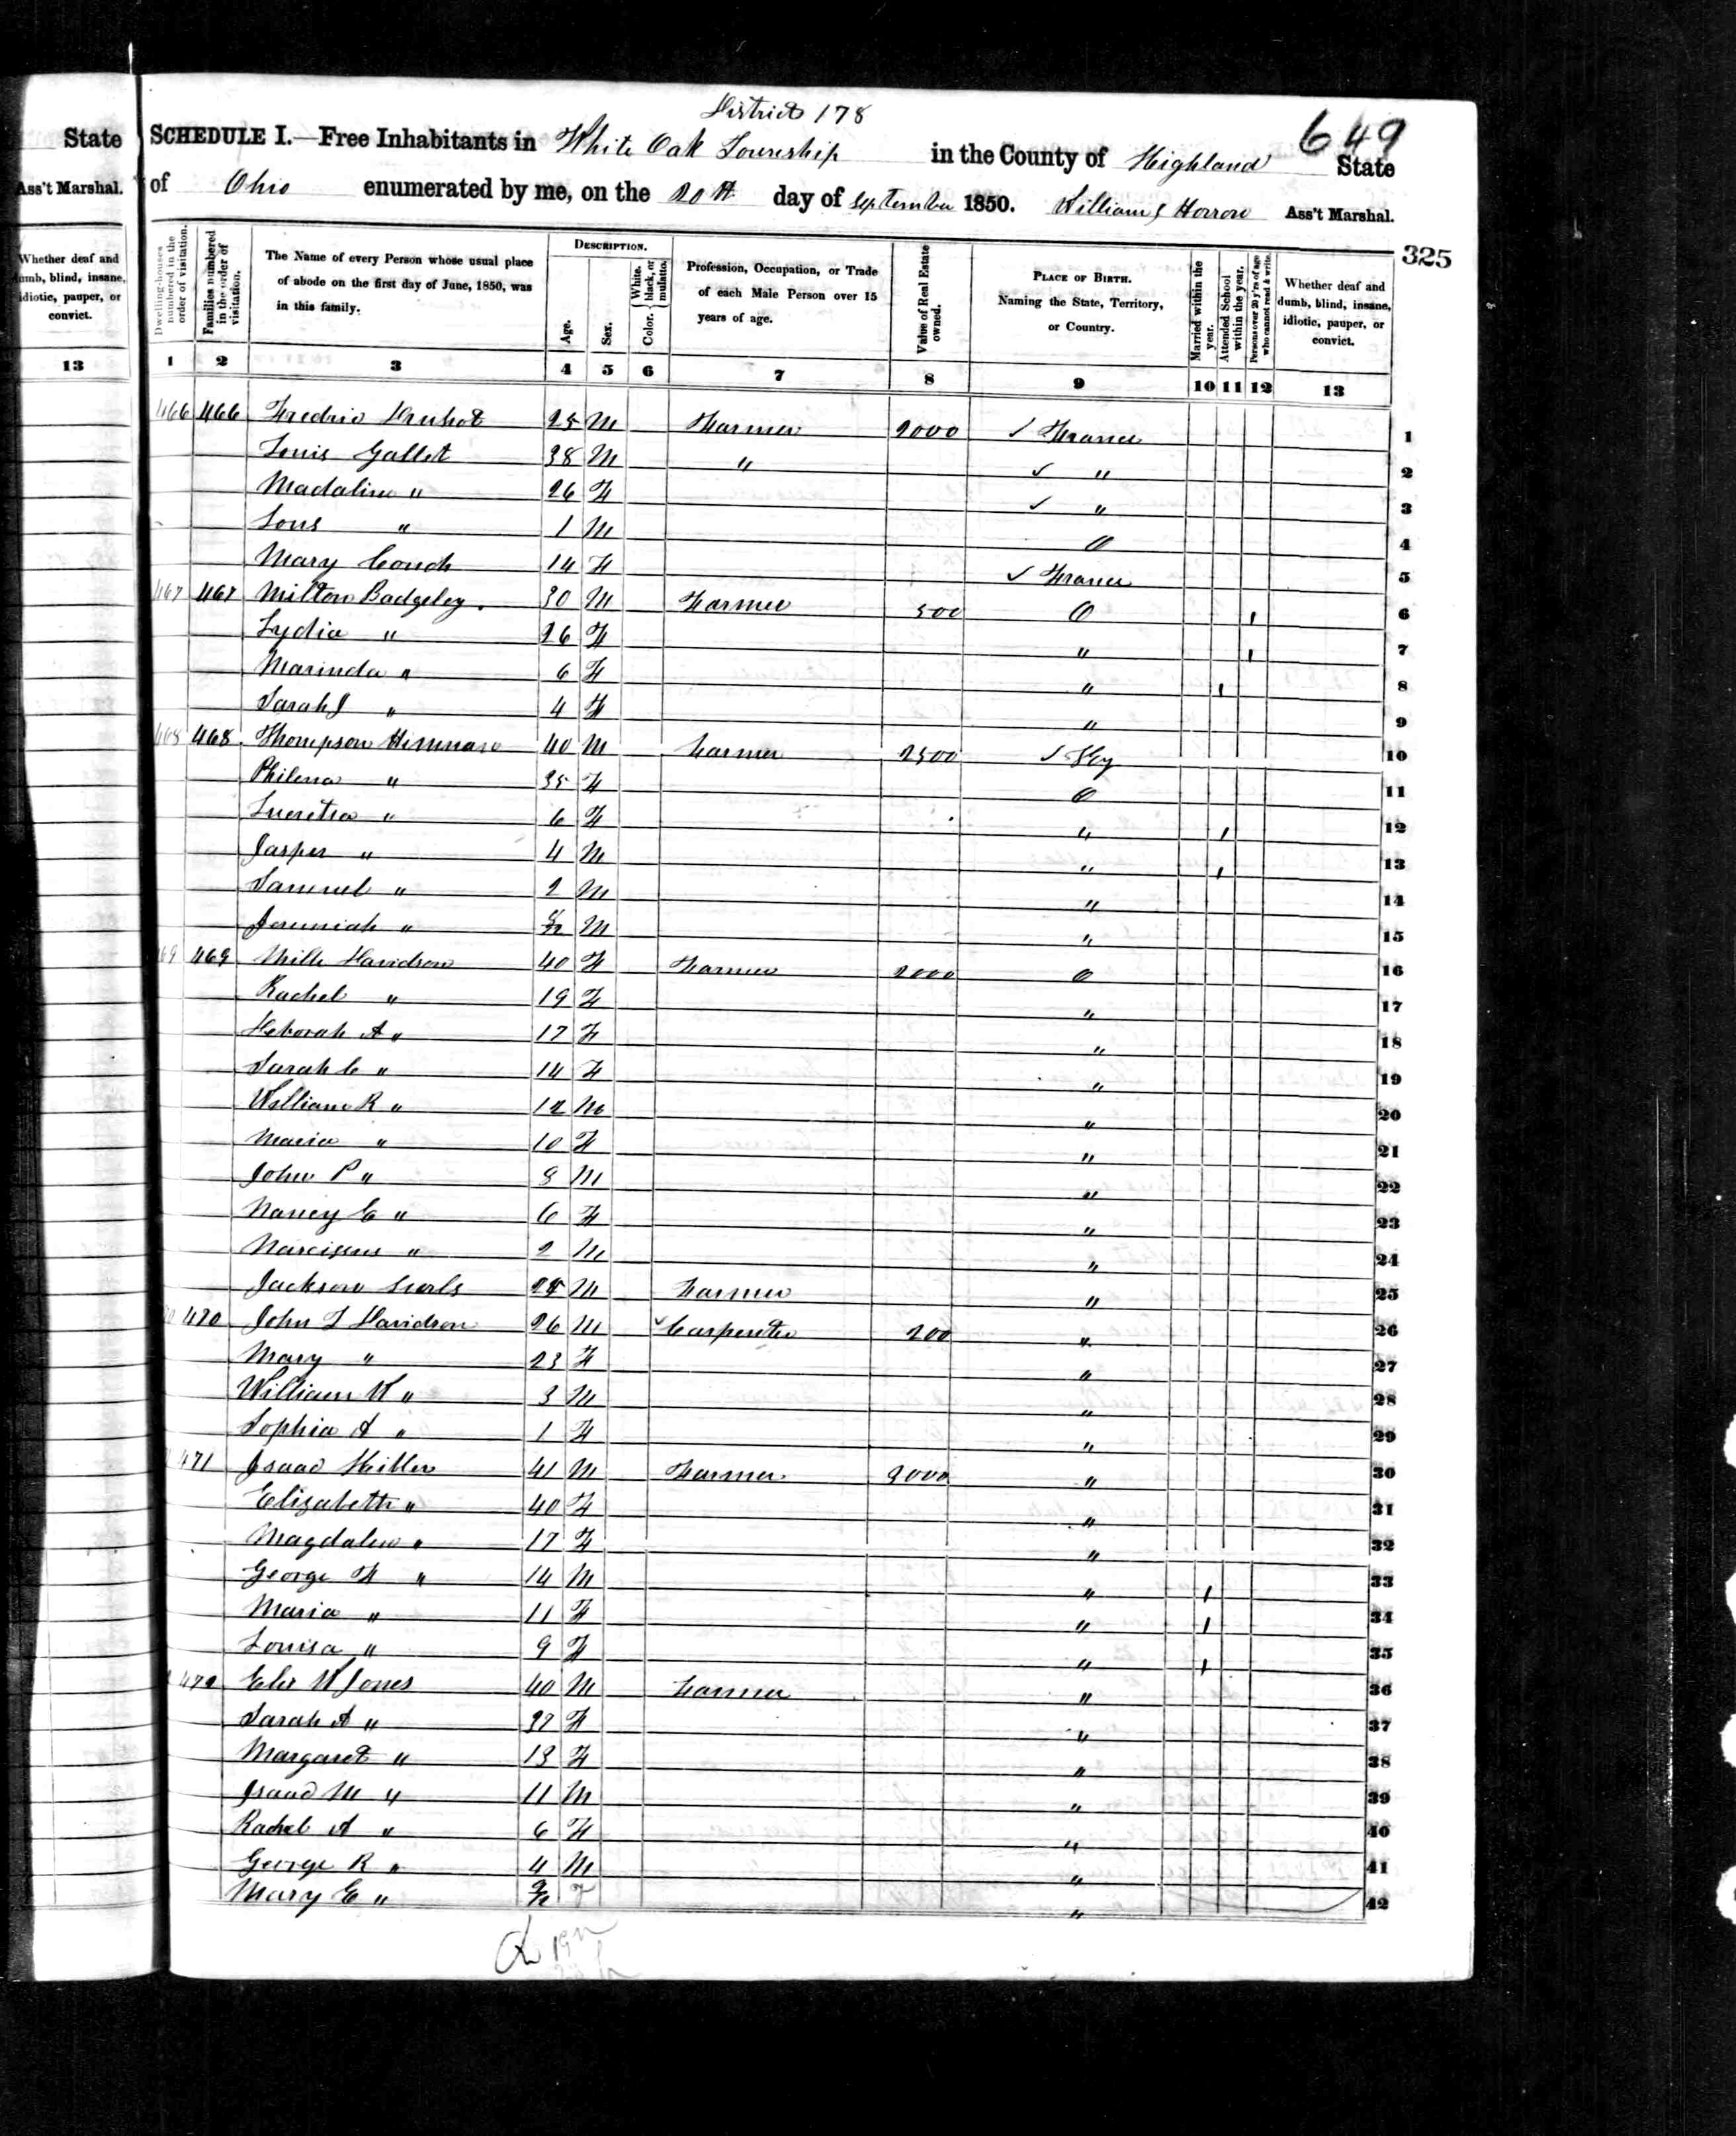 District 178
649
State
SCHEDULE I.—Free Inhabitants in White Oak Township in the County of Highland State
Ass't Marshal.
of Ohio enumerated by me, on the 20th day of September 1850. William Ass't Marshal.
325
Whether deaf and dumb, blind, insane, idiotic, pauper, or convict.
13
Dwelling-houses numbered in the order of visitation.
Families numbered in the order of visitation.
The Name of every Person whose usual place of abode on the first day of June, 1850, was in this family.
DESCRIPTION.
Age.
Sex.
Color. White, black, or mulatto.
Profession, Occupation, or Trade of each Male Person over 15 years of age.
Value of Real Estate owned.
PLACE OF BIRTH. Naming the State, Territory, or Country.
Married within the year.
Attended School within the year.
Persons over 20 y'rs of age who cannot read & write.
Whether deaf and dumb, blind, insane, idiotic, pauper, or convict.
1 2 3 4 5 6 7 8 9 10 11 12 13
466 466 Fredric 25 M Farmer 2000 ✓ France 1
Louis Gallet 38 M " ✓ " 2
Madaline " 26 F ✓ " 3
Louis " 1 M O 4
Mary Couch 14 F ✓ France 5
467 467 Milton Badgeley 30 M Farmer 500 O 1 6
Lydia " 26 F " 1 7
Marinda " 6 F " 1 8
Sarah J " 4 F " 9
468 468 Thompson 40 M Farmer 2500 ✓ Ky 10
Philena " 35 F O 11
Lucretia " 6 F " 1 12
Jasper " 4 M " 1 13
Samuel " 2 M " 14
Jeremiah " M " 15
469 469 Mille Davidson 40 F Farmer 2000 O 16
Rachel " 19 F " 17
Deborah A " 17 F " 18
Sarah C " 14 F " 19
William R " 12 M " 20
Maria " 10 F " 21
John P " 8 M " 22
Nancy E " 6 F " 23
Narcissus " 2 M " 24
Jackson M Farmer " 25
470 John T Davidson 26 M ✓ Carpenter 200 " 26
Mary " 23 F " 27
William W " 3 M " 28
Sophia A " 1 F " 29
471 Isaac 41 M Farmer 2000 " 30
Elizabeth " 40 F " 31
Magdalen " 17 F " 32
George F " 14 M " 1 33
Maria " 11 F " 1 34
Louisa " 9 F " 1 35
472 W Jones 40 M Farmer " 36
Sarah A " 37 F " 37
Margaret " 13 F " 38
Isaac M " 11 M " 39
Rachel A " 6 F " 40
George R " 4 M " 41
Mary E " F " 42